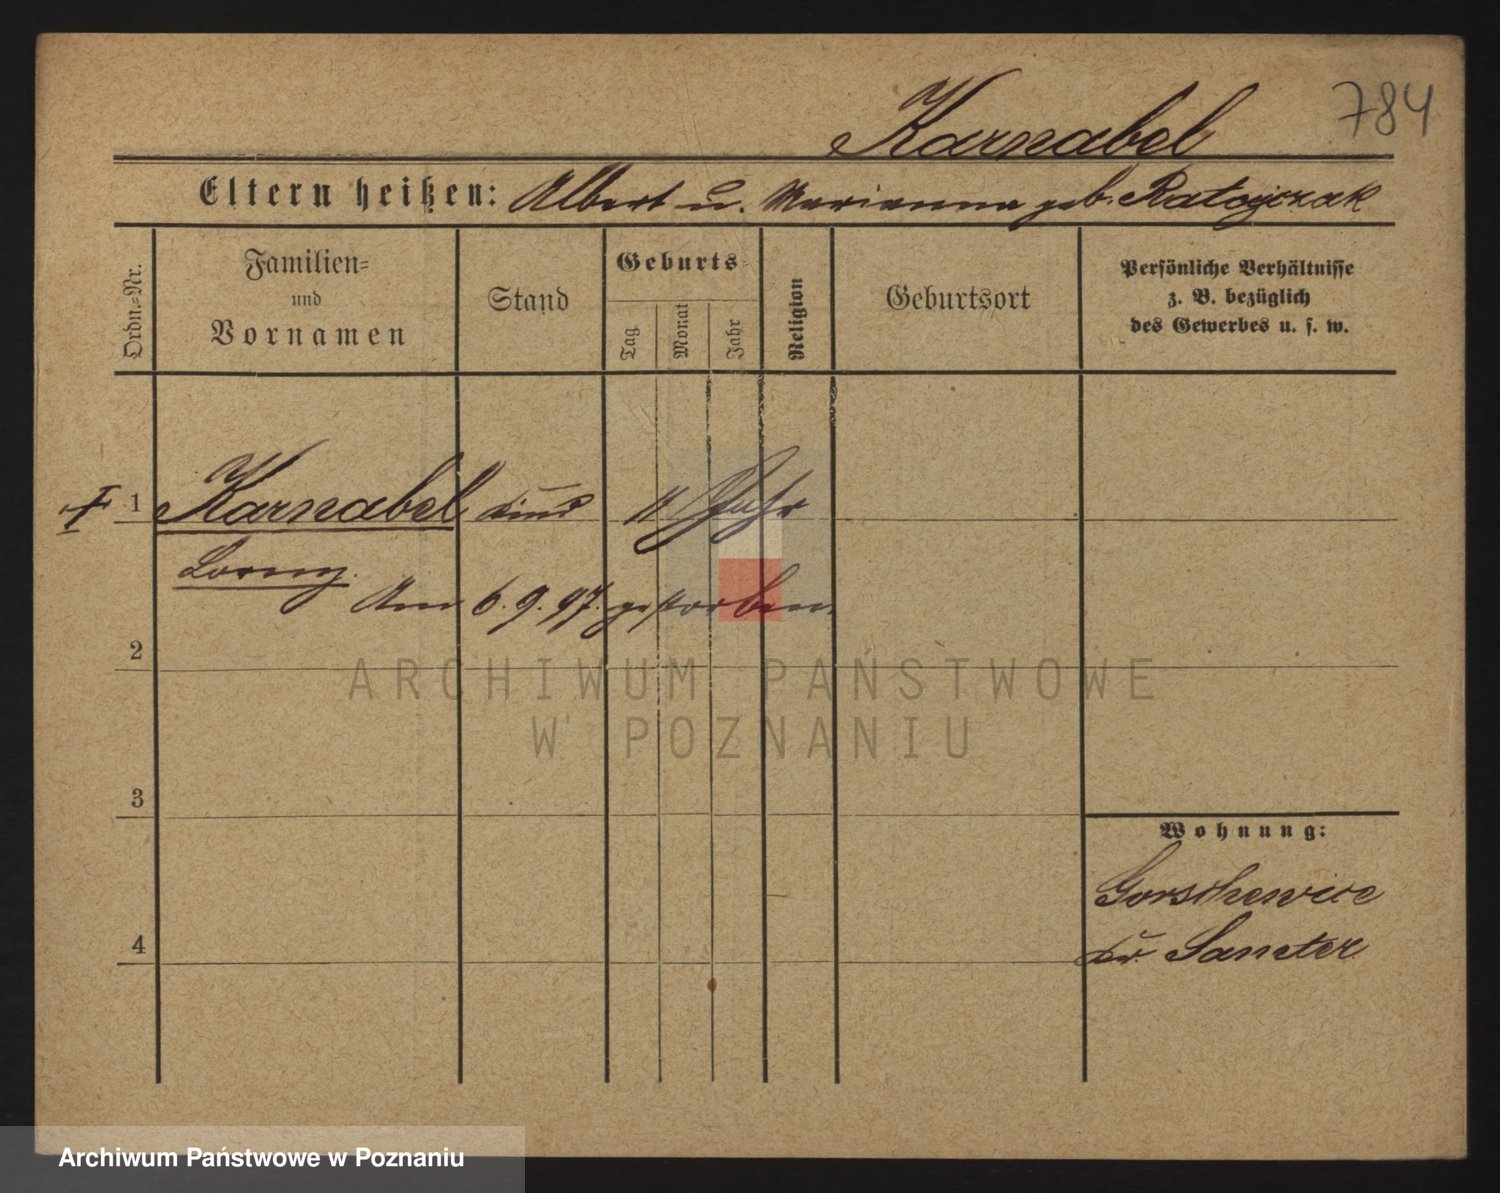 Karnabel 784
Eltern heißen: Albert u. Marianna geb. Ratajczak
Ordn.=Nr.
Familien=
und
Vornamen
Stand
Geburts=
Tag
Monat
Jahr
Religion
Geburtsort
Persönliche Verhältnisse
z. B. bezüglich
des Gewerbes u. s. w.
† 1 Karnabel Kind 11 Jahr
Am 6. 9. 97. gestorben.
2
3
4
Wohnung:
Gorschewice
Kr. Samter
ARCHIWUM PAŃSTWOWE
W POZNANIU
Archiwum Państwowe w Poznaniu